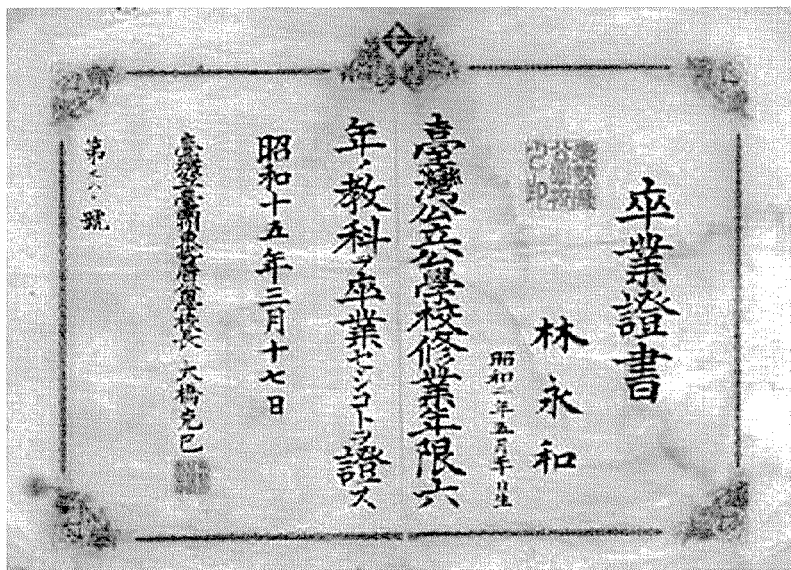 卒業證書
林永和
昭和二年五月
日生
臺灣公立公學校修業年限六
年ノ教科ヲ卒業セシコトヲ證ス
昭和十五年三月十七日
校長 大橋克巳
第
號